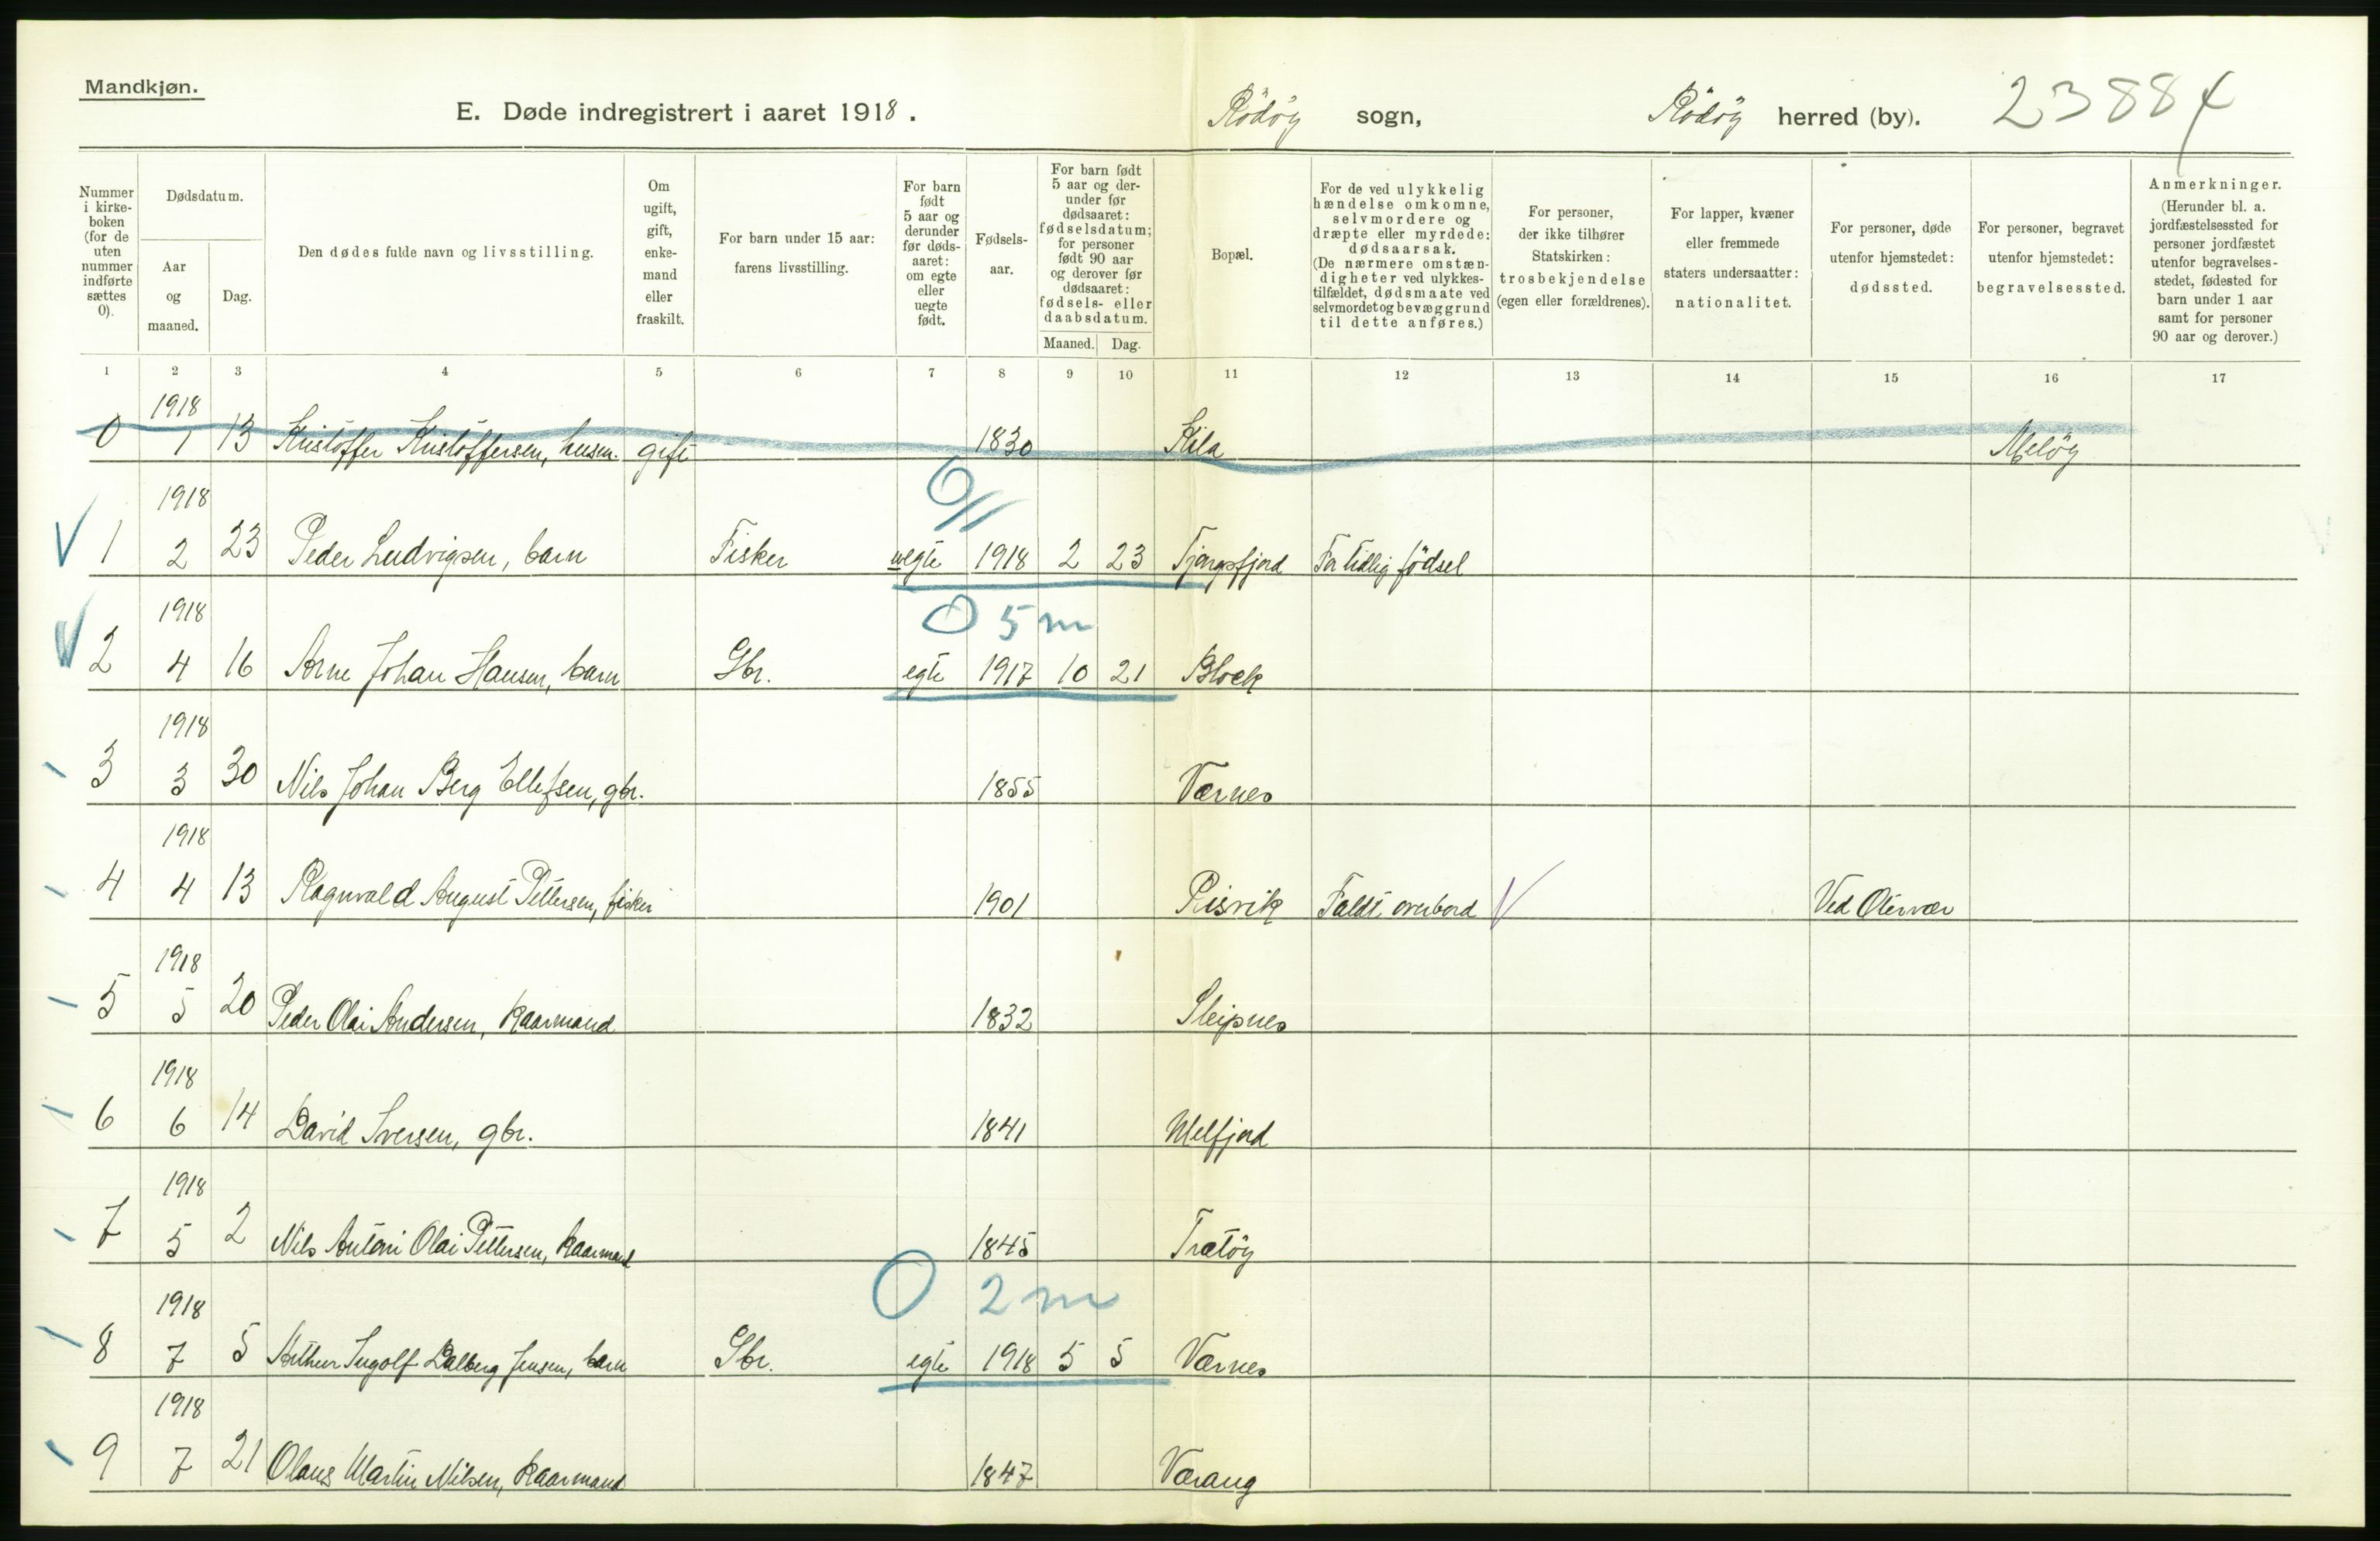 Mandkjøn.
E. Døde indregistrert i aaret 1918.
Rödöy sogn, Rödöy herred (by). 23884
Nummer i kirke-boken (for de uten nummer indførte sættes 0).
Dødsdatum.
Aar og maaned.
Dag.
Den dødes fulde navn og livsstilling.
Om ugift, gift, enke-mand eller fraskilt.
For barn under 15 aar: farens livsstilling.
For barn født 5 aar og derunder før døds-aaret: om egte eller uegte født.
Fødsels-aar.
For barn født 5 aar og der-under før dødsaaret: fødselsdatum; for personer født 90 aar og derover før dødsaaret: fødsels- eller daabsdatum.
Maaned. Dag.
Bopæl.
For de ved ulykkelig hændelse omkomne, selvmordere og dræpte eller myrdede: dødsaarsak. (De nærmere omstæn-digheter ved ulykkes-tilfældet, dødsmaate ved selvmordet og bevæggrund til dette anføres.)
For personer, der ikke tilhører Statskirken: trosbekjendelse (egen eller forældrenes).
For lapper, kvæner eller fremmede staters undersaatter: nationalitet.
For personer, døde utenfor hjemstedet: dødssted.
For personer, begravet utenfor hjemstedet: begravelsessted.
Anmerkninger. (Herunder bl. a. jordfæstelsessted for personer jordfæstet utenfor begravelses-stedet, fødested for barn under 1 aar samt for personer 90 aar og derover.)
1 2 3 4 5 6 7 8 9 10 11 12 13 14 15 16 17
1918
0 1 13 Kristoffer Kristoffersen, husm. gift 1830 Kila Melöy
1918
1 2 23 Peder Ludvigsen, barn Fisker uegte 1918 2 23 Tjongsfjord For tidlig födsel
1918 0 5 m
2 4 16 Arne Johan Hansen, barn Gbr. egte 1917 10 21 Blok
1918
3 3 30 Nils Johan Berg Ellefsen, gbr. 1855 Værnes
1918
4 4 13 Ragnvald August Pettersen, fisker 1901 Risvik Faldt overbord V Ved Otervær
1918
5 5 20 Peder Olai Andersen, kaarmand 1832 Sleipnes
1918
6 6 14 David Iversen, gbr. 1841 Melfjord
1918
7 5 2 Nils Antoni Olai Pettersen, kaarmand 1845 Trætöy
1918 0 2 m
8 7 5 Arthur Ingolf Dalberg Jensen, barn Gbr. egte 1918 5 5 Værnes
1918
9 7 21 Olaus Martin Nilsen, kaarmand 1847 Værang